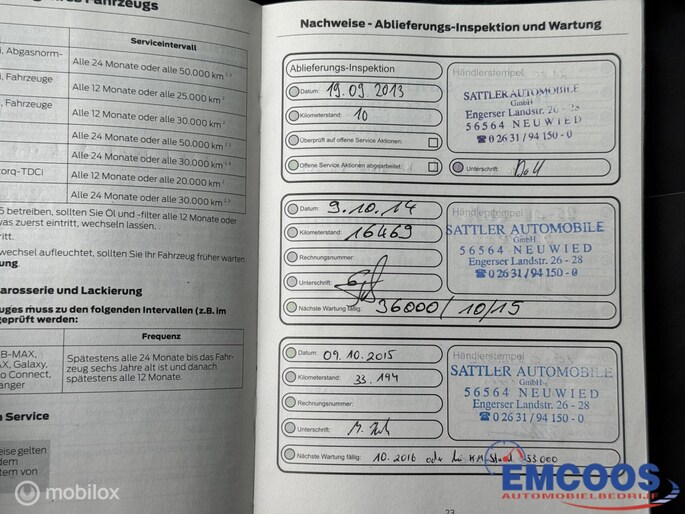 Fahrzeugs
Serviceintervall
, Abgasnorm-
Alle 24 Monate oder alle 50.000 km
, Fahrzeuge
Alle 12 Monate oder alle 25.000 km
, Fahrzeuge
Alle 12 Monate oder alle 30.000 km
Alle 24 Monate oder alle 50.000 km
Alle 24 Monate oder alle 30.000 km
torq-TDCi
Alle 12 Monate oder alle 20.000 km
Alle 24 Monate oder alle 30.000 km
5 betreiben, sollten Sie Öl und -filter alle 12 Monate oder
was zuerst eintritt, wechseln lassen.
tritt.
wechsel aufleuchtet, sollten Sie Ihr Fahrzeug früher warten
ung.
arosserie und Lackierung
uges muss zu den folgenden Intervallen (z.B. im
geprüft werden:
Frequenz
B-MAX,
AX, Galaxy,
o Connect,
anger
Spätestens alle 24 Monate bis das Fahr-
zeug sechs Jahre alt ist und danach
spätestens alle 12 Monate.
n Service
eise gelten
dem
tem von
Nachweise - Ablieferungs-Inspektion und Wartung
Ablieferungs-Inspektion
Datum: 19.09.2013
Kilometerstand: 10
Überprüft auf offene Service Aktionen:
Offene Service Aktionen abgearbeitet:
Händlerstempel
SATTLER AUTOMOBILE
GmbH
Engerser Landstr. 26 - 28
56564 NEUWIED
☎ 0 26 31 / 94 150 - 0
Unterschrift:
Datum: 9.10.14
Kilometerstand: 16469
Rechnungsnummer:
Unterschrift:
Nächste Wartung fällig: 36000 / 10/15
Händlerstempel
SATTLER AUTOMOBILE
GmbH
56564 NEUWIED
Engerser Landstr. 26 - 28
☎ 0 26 31 / 94 150 - 0
Datum: 09.10.2015
Kilometerstand: 33.194
Rechnungsnummer:
Unterschrift:
Nächste Wartung fällig: 10.2016 oder bei KM Stand 53000
Händlerstempel
SATTLER AUTOMOBILE
GmbH
56564 NEUWIED
Engerser Landstr. 26 - 28
☎ 0 26 31 / 94 150 - 0
23
mobilox
EMCOOS
AUTOMOBIELBEDRIJF